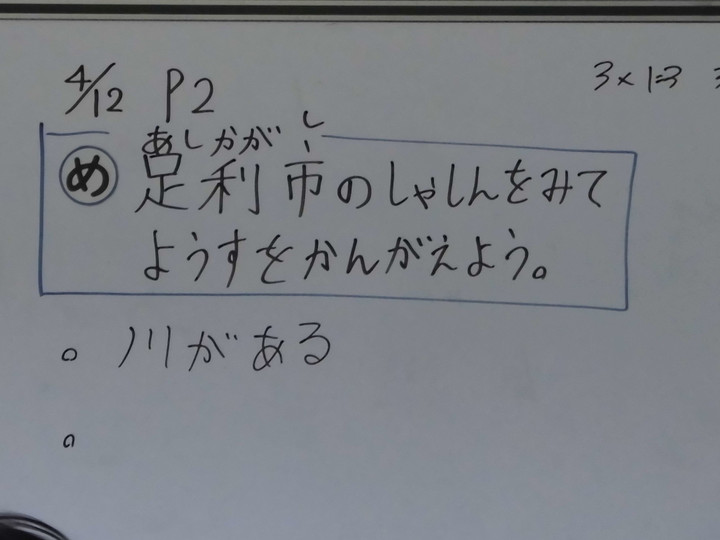 4/12 P2
3×1=3
あしかがし
め 足利市のしゃしんをみて
ようすをかんがえよう。
○ 川がある
○